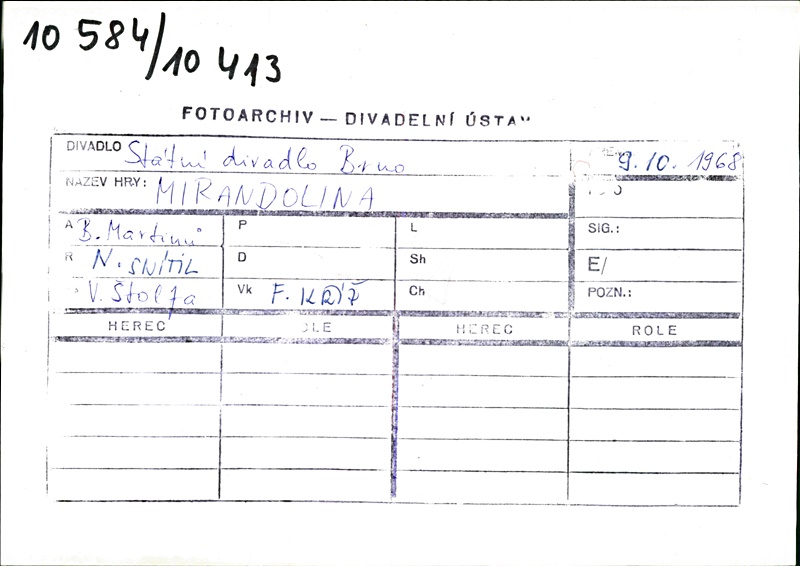 10 584/10 413
FOTOARCHIV — DIVADELNÍ ÚSTAV
DIVADLO Státní divadlo Brno
9.10. 1968
NÁZEV HRY: MIRANDOLINA
A B. Martinů P L SIG.:
R N. SNÍTIL D Sh E/
V. Štolfa Vk F. KŘÍŽ Ch POZN.:
HEREC HEREC ROLE